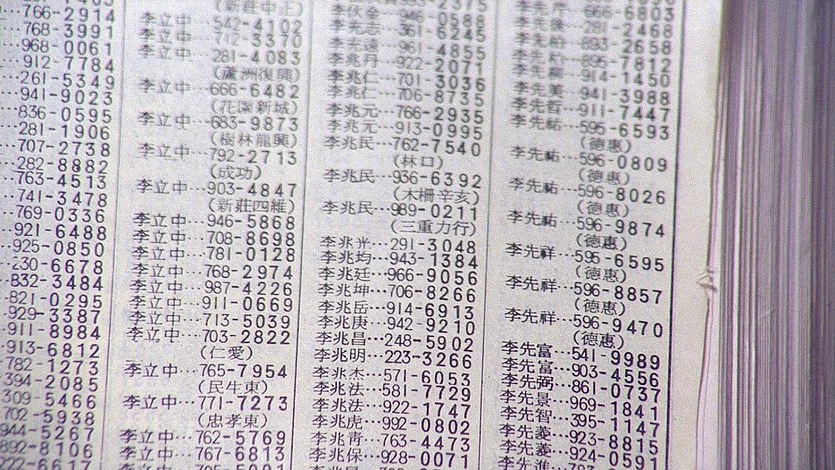 766-2914
768-3991
968-0061
912-7784
261-5349
941-9023
836-0595
281-1906
707-2738
282-8882
763-4513
741-3478
769-0336
921-6488
925-0850
230-6678
832-3484
821-0295
929-3387
911-8984
913-6812
782-1273
394-2085
309-5466
702-5938
944-5267
892-8106
(新莊中正)
李立中…542-4102
李立中…712-3370
李立中…281-4083
(蘆洲復興)
李立中…666-6482
(花園新城)
李立中…683-9873
(樹林龍興)
李立中…792-2713
(成功)
李立中…903-4847
(新莊四維)
李立中…946-5868
李立中…708-8698
李立中…781-0128
李立中…768-2974
李立中…987-4226
李立中…911-0669
李立中…713-5039
李立中…703-2822
(仁愛)
李立中…765-7954
(民生東)
李立中…771-7273
(忠孝東)
李立中…762-5769
李立中…767-6813
李伙金…946-0588
李先志…361-6245
李兆遠…961-4855
李兆丹…922-2071
李兆仁…701-3036
李兆仁…706-8735
李兆元…766-2935
李兆元…913-0995
李兆民…762-7540
(林口)
李兆民…936-6392
(木柵辛亥)
李兆民…989-0211
(三重力行)
李兆光…291-3048
李兆均…943-1384
李兆廷…966-9056
李兆坤…706-8266
李兆岳…914-6913
李兆庚…942-9210
李兆昌…248-5902
李兆明…223-3266
李兆杰…571-6053
李兆法…581-7729
李兆法…922-1747
李兆虎…992-0802
李兆青…763-4473
李兆保…928-0071
666-6803
李先後…281-2468
李先柏…893-2658
李先柏…895-7812
914-1450
李先美…941-3988
李先哲…911-7447
李先祐…595-6593
(德惠)
李先祐…596-0809
(德惠)
李先祐…596-8026
(德惠)
李先祐…596-9874
(德惠)
李先祥…595-6595
(德惠)
李先祥…596-8857
(德惠)
李先祥…596-9470
(德惠)
李先富…541-9989
李先富…903-4556
李先弼…861-0737
李先景…969-1841
李先智…395-1147
李先菱…923-8815
李先菱…924-0591